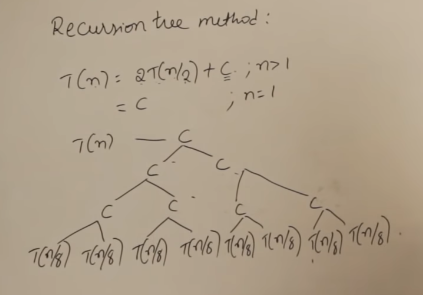 Recursion tree method:
T(n) = 2T(n/2) + C ; n>1
= C ; n=1
T(n) — C
C C
C C C C
T(n/8) T(n/8) T(n/8) T(n/8) T(n/8) T(n/8) T(n/8) T(n/8)